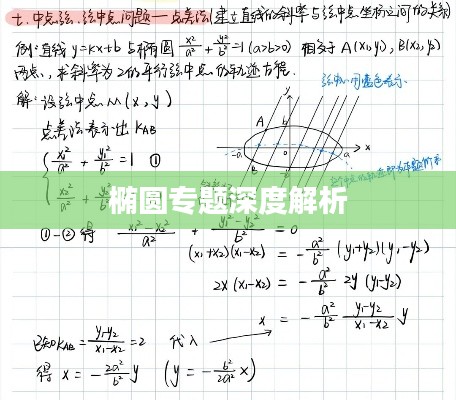 七.中点弦.弦中点问题—点差法(建立直线的斜率与弦中点坐标之间的关系)
例:直线 y=kx+b 与椭圆 x²/a² + y²/b² =1 (a>b>0) 相交于 A(x₁,y₁), B(x₂,y₂)
两点,求斜率为2的平行弦中点的轨迹方程.
弦中点用蓝色表示
解:设弦中点 M(x,y)
点差法表示出 KAB
A
y
-a
b
a
x
B
x₁²/a² + y₁²/b² =1 ①
x₂²/a² + y₂²/b² =1 ②
椭圆专题深度解析
①-② 得 x₁²-x₂²/a² + y₁²-y₂²/b² = 0
(x₁+x₂)(x₁-x₂) = - a²/b² (y₁+y₂)(y₁-y₂)
2x(x₁-x₂) = - a²/b² 2y(y₁-y₂)
x = - a²/b² y₁-y₂/x₁-x₂ y
已知KAB = y₁-y₂/x₁-x₂ =2 代入
得 x = - 2a²/b² y (y=- b²/2a² x)